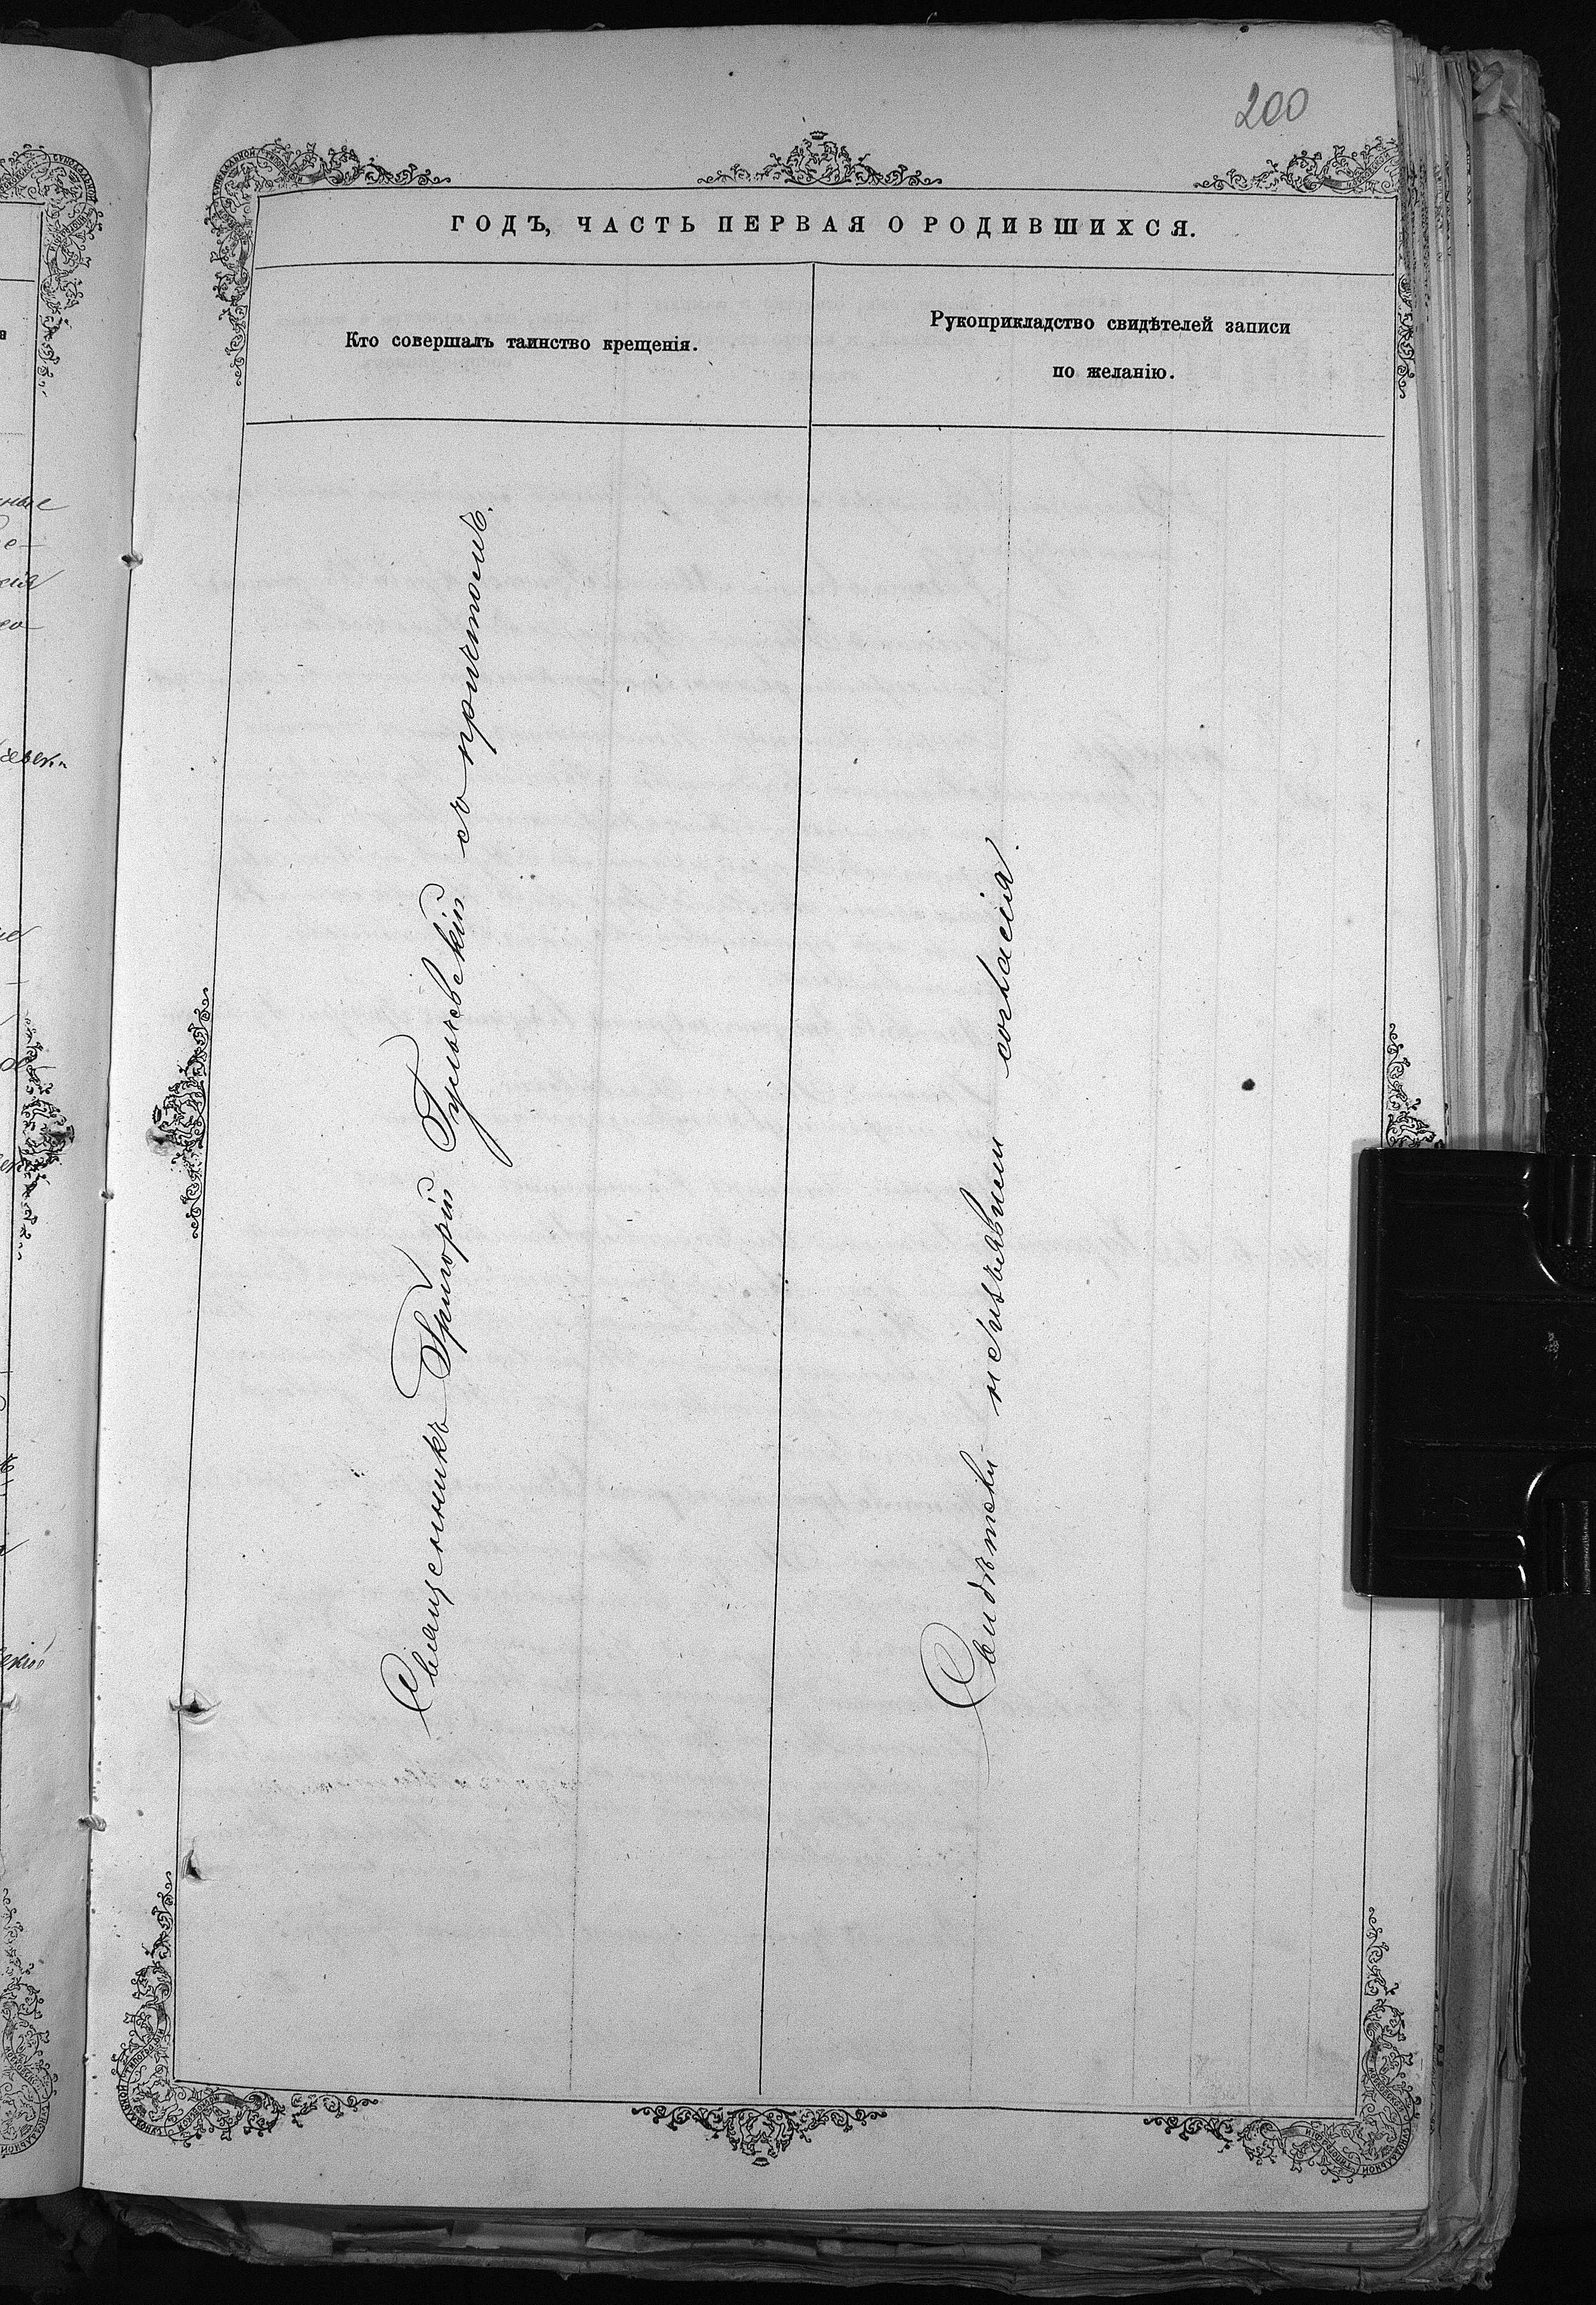 200
ГОДЪ, ЧАСТЬ ПЕРВАЯ О РОДИВШИХСЯ.
Кто совершалъ таинство крещенія.
Рукоприкладство свидѣтелей записи
по желанію.
Священникъ Григорій Гульчевскій съ причтомъ.
Свидѣтели неизъявили согласія.